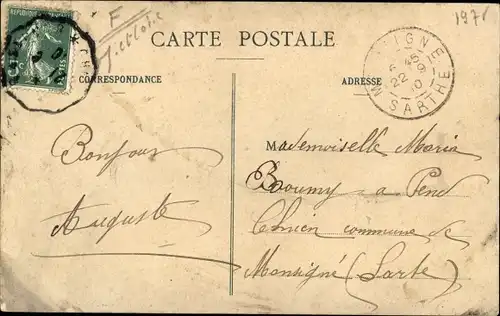 1971
F
CARTE POSTALE
CORRESPONDANCE
ADRESSE
IGNE
22 9
SARTHE
Bonjour
Auguste
Mademoiselle Maria
Broumy a Pend
Chien commune de
Monsigné (Sarte)